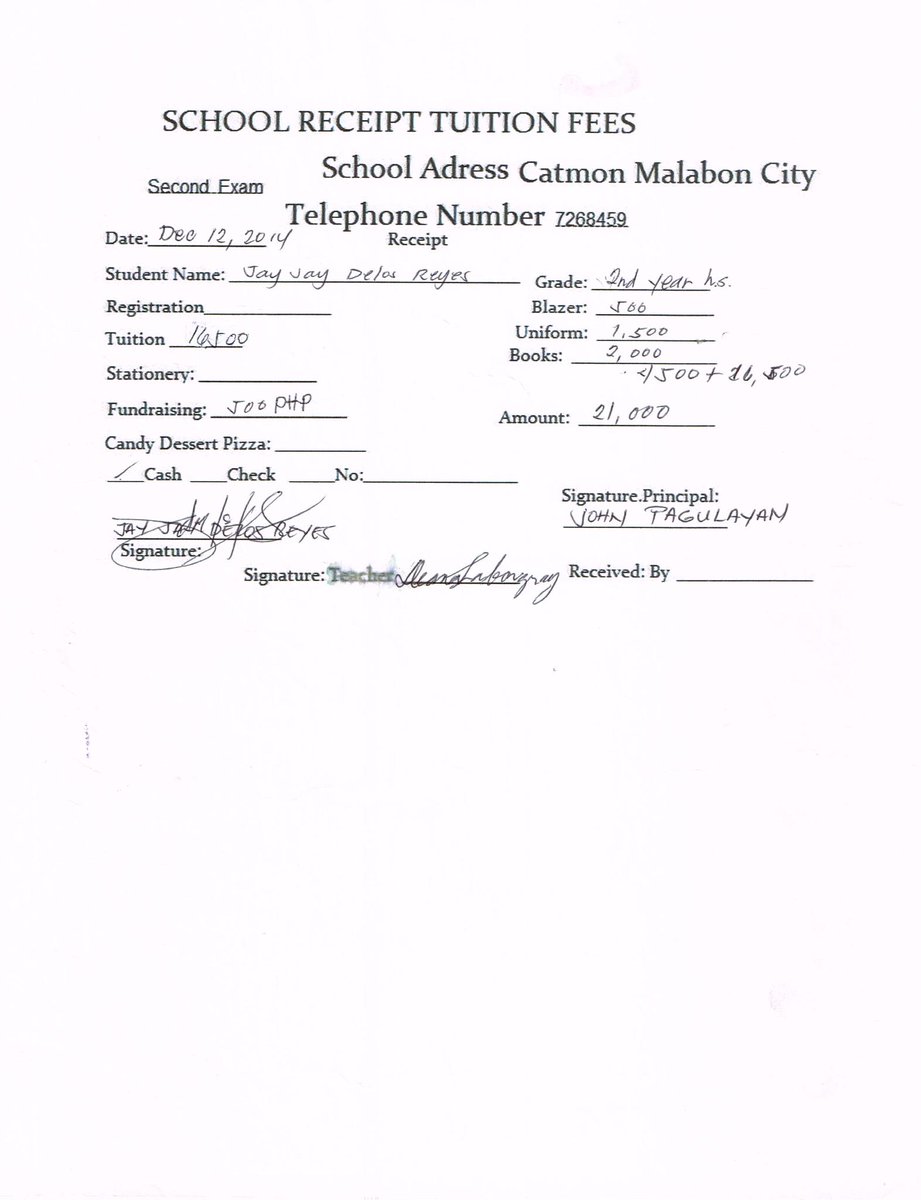 SCHOOL RECEIPT TUITION FEES
School Adress Catmon Malabon City
Second Exam
Telephone Number 7268459
Date: Dec 12, 2014 Receipt
Student Name: Jay Jay Delos Reyes Grade: 2nd year h.s.
Registration Blazer: 500
Tuition 16500 Uniform: 1,500
Books: 2,000
Stationery: 4500 + 16,500
Fundraising: 500 PHP Amount: 21,000
Candy Dessert Pizza:
Cash Check No:
Signature.Principal:
JOHN PAGULAYAN
JAY JAY DELOS REYES
Signature:
Signature: Teacher Received: By